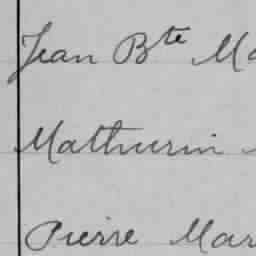 Jean Bte Ma
Mathurin
Pierre Mar